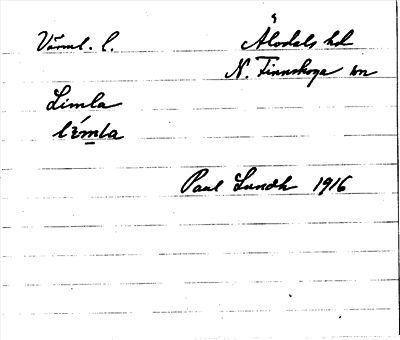 Värml. l. Älvdals hd
N. Finnskoga sn
Limla
lim̲la
Paul Lundh 1916